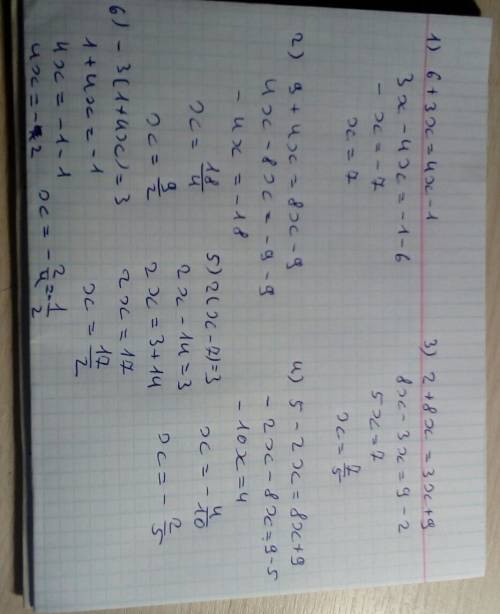 1) 6+3x=4x-1
3x-4x=-1-6
-x=-7
x=7
2) 9+4x=8x-9
4x-8x=-9-9
-4x=-18
x=18/4
x=9/2
3) 2+8x=3x+9
8x-3x=9-2
5x=7
x=7/5
4) 5-2x=8x+9
-2x-8x=9-5
-10x=4
x=-4/10
x=-2/5
5) 2(x-7)=3
2x-14=3
2x=3+14
2x=17
x=17/2
6) -3(1+4x)=3
1+4x=-1
4x=-1-1
4x=-2
x=-2/4=-1/2